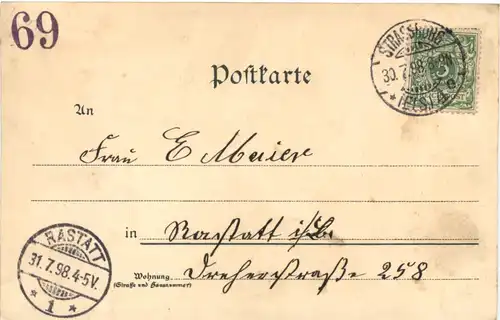 69
STRASSBURG
30.7.98.
(ELS)
Postkarte
An
Frau E Maier
in Rastatt i/B.
RASTATT
31.7.98.4-5V.
* 1 *
Wohnung
(Straße und Hausnummer)
Dreherstraße 258